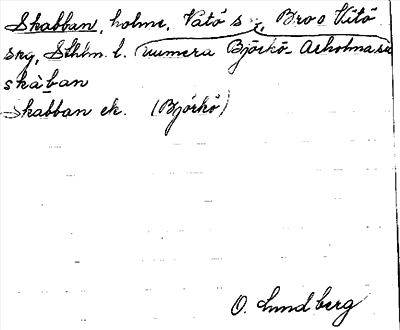 Skabban, holme, Vätö s:n, Bro o Vätö
skg, Sthlm. l. numera Björkö Arholma sn
skàban
Skabban ek. (Björkö)
O. Lundberg